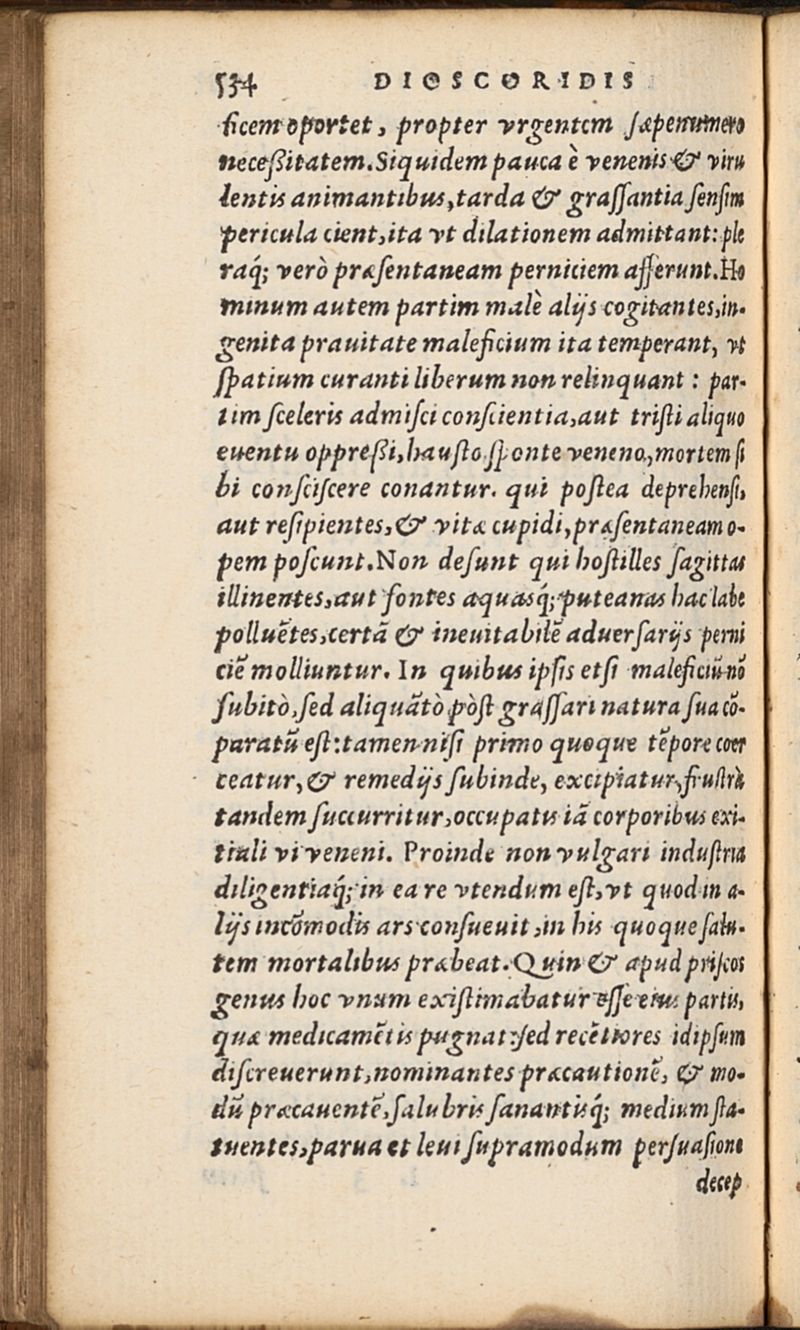 534 DIOSCORIDIS
ficem oportet, propter vrgentem sæpenumero
neceßitatem. Siquidem pauca è venenis & viru
lentis animantibus, tarda & grassantia sensim
pericula cient, ita vt dilationem admittant: ple
raq́; verò præsentaneam perniciem afferunt. Ho
minum autem partim malè alijs cogitantes, in-
genita prauitate maleficium ita temperant, vt
spatium curanti liberum non relinquant : par-
tim sceleris admisci conscientia, aut tristi aliquo
euentu oppreßi, hausto sponte veneno, mortem si
bi consciscere conantur. qui postea deprehensi,
aut resipientes, & vitæ cupidi, præsentaneam o-
pem poscunt. Non desunt qui hostilles sagittas
illinentes, aut fontes aquasq́; puteanas hac labe
polluẽtes, certã & ineuitabilẽ aduersarijs perni
ciẽ molliuntur. In quibus ipsis etsi maleficiũ nõ
subitò, sed aliquãtò pòst grassari natura sua cõ-
paratũ est: tamen nisi primo quoque tẽpore coer
ceatur, & remedijs subinde, excipiatur, frustrà
tandem succurritur, occupatis iã corporibus exi-
tiali vi veneni. Proinde non vulgari industria
diligentiaq́; in ea re vtendum est, vt quod in a-
lijs incõmodis ars consueuit, in his quoque salu-
tem mortalibus præbeat. Quin & apud priscos
genus hoc vnum existimabatur esse eius partis,
quæ medicamẽtis pugnat: sed recẽtiores idipsum
discreuerunt, nominantes præcautionẽ, & mo-
dũ præcauentẽ, salubris sanantisq́; medium sta-
tuentes, parua et leui supramodum persuasione
decep